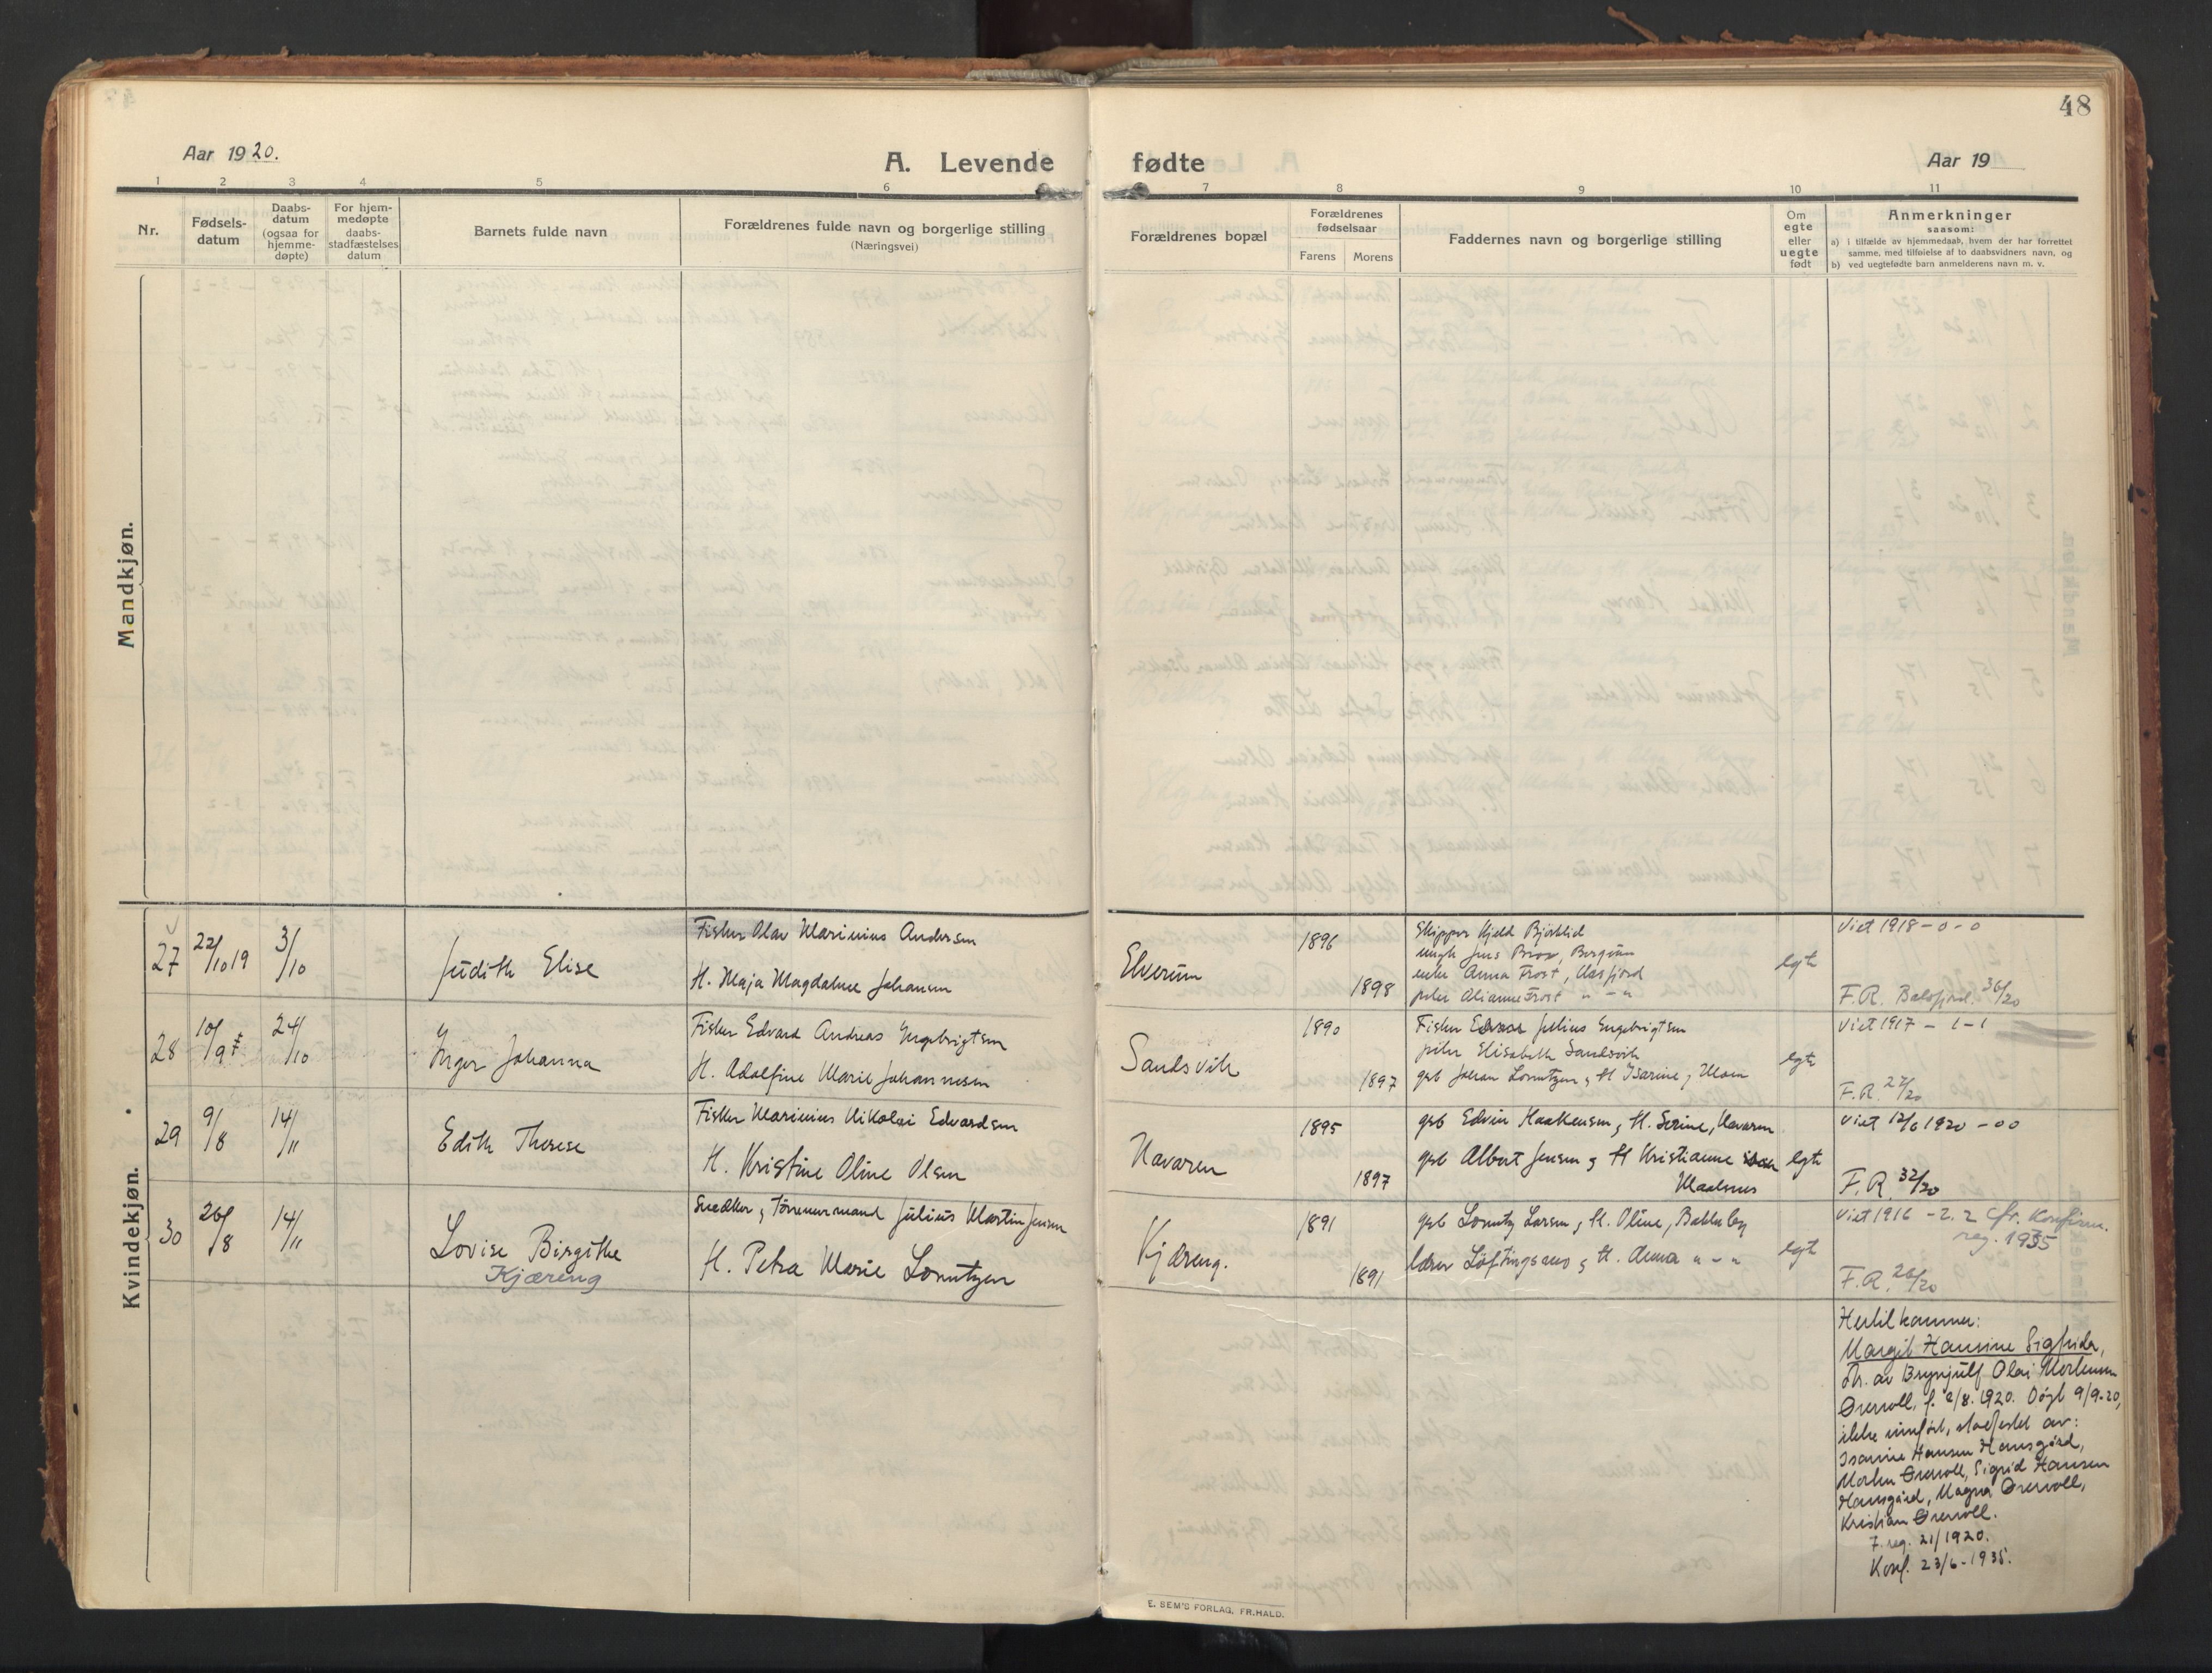 48
Aar 1920.
A. Levende fødte
Aar 19
1 2 3 4 5 6 7 8 9 10 11
Nr.
Fødsels-
datum
Daabs-
datum
(ogsaa for
hjemme-
døpte)
For hjem-
medøpte
daabs-
stadfæstelses
datum
Barnets fulde navn
Forældrenes fulde navn og borgerlige stilling
(Næringsvei)
Forældrenes bopæl
Forældrenes
fødselsaar
Farens Morens
Faddernes navn og borgerlige stilling
Om
egte
eller
uegte
født
Anmerkninger
saasom:
a) i tilfælde av hjemmedaab, hvem der har forrettet
samme, med tilføielse af to daabsvidners navn, og
b) ved uegtefødte barn anmelderens navn m. v.
Mandkjøn.
Kvindekjøn.
27
22/10 19
3/10
Judith Elise
Fisker Olav Marinius Andersen
H. Maja Magdalene Johansen
Elverum
1896
1898
Skipper Kjeld Bjørklid
ungk Jens Brox,
enke Anna Frost,
pike Alianne Frost " - "
egte
Viet 1918 - 0 - 0
F.R. Balsfjord. 36/20
28
10/9
24/10
Inger Johanna
Fisker Edvard Andreas Ingebrigtsen
H. Adolfine Marie Johannesen
Sandsvik
1890
1897
Fisker Edvar Julius Engebrigtsen
pike Elisabeth Sandsvik
grb Johan Lorentzen & H Isarine, Moen
egte
Viet 1917 - 1 - 1
F.R. 27/20
29
9/8
14/11
Edith Therese
Fisker Marinius Nikolai Edvardsen
H. Kristine Oline Olsen
Navaren
1895
1897
grb Edvin Haakensen & H. Serine, Navaren
grb Albert Jensen & H Kristianne
Maalsnes
egte
Viet 12/6 1920 - 00
F.R. 32/20
30
26/8
14/11
Lovise Birgithe
Kjæreng
Snedker & Tømmermand Julius Martin Jensen
H. Petra Marie Lorentzen
Kjæreng.
1891
1891
grb Lorentz Larsen & H. Oline, Bakkeby
lærer Løftingsmo & H. Anna " - "
egte
Viet 1916 - 2. 2 Cfr. Konfirm.
reg. 1935
F.R. 26/20
Hertil kommer:
Margit Hansine Sigfrida,
dtr. av Brynjulf Olai Mortensen
Øvervoll, f. 2/8. 1920. Døpt 9/9-20,
ikke innført, stadfestet av:
Isanine Hansen Hansgård,
Morten Øvervoll, Sigrid Hansen
Hansgård, Magna Øvervoll,
Kristian Øvervoll.
F. reg. 21/1920.
Konf. 23/6-1935.
E. SEM'S FORLAG, FR.HALD.